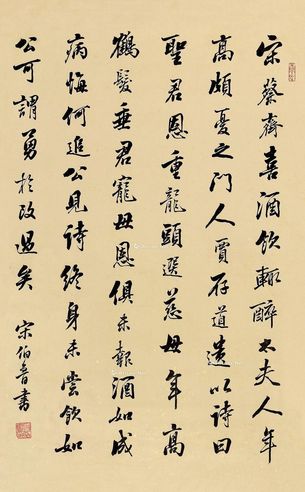 宋蔡齊喜酒飲輒醉太夫人年
高頗憂之門人賈存道遺以詩曰
聖君恩重龍頭選慈母年高
鶴髮垂君寵母恩俱未報酒如成
病悔何追公見詩終身未嘗飲如
公可謂勇於改過矣 宋伯魯書